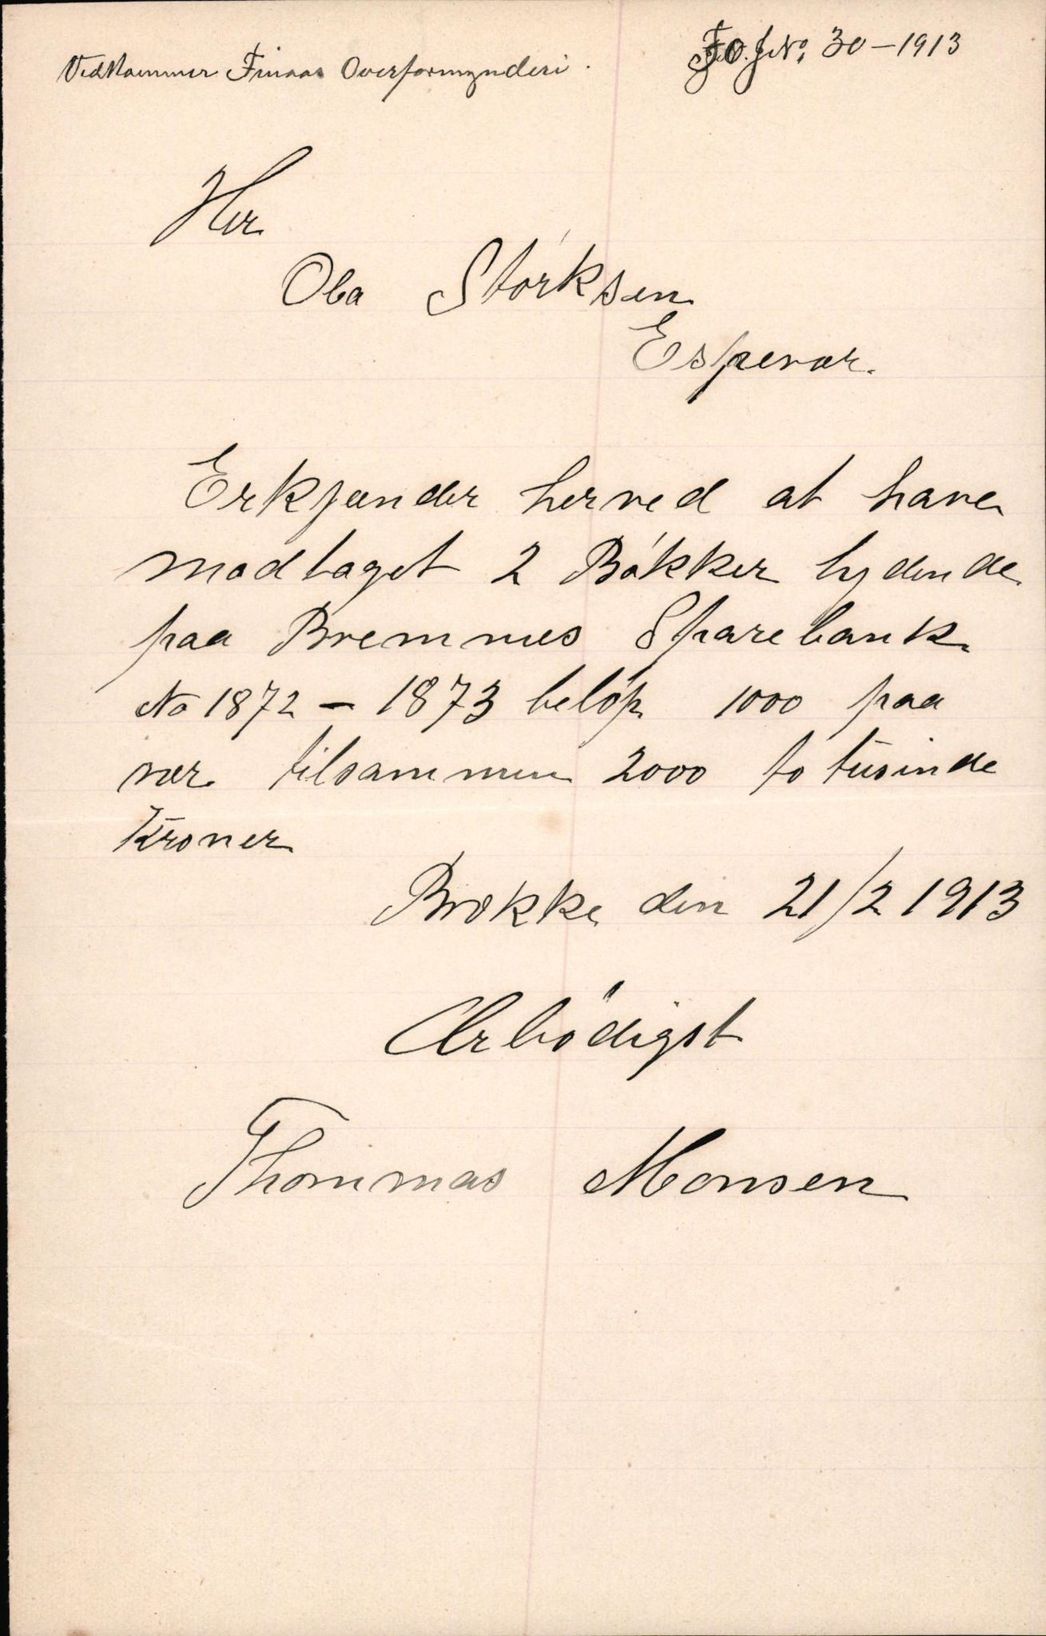 Vedkommer Finaas Overformynderi.
F.O. J.No. 30-1913
Her
Ola Störksen
Espevær.
Erkjender herved at have
modtaget 2 Bökker lydende
paa Bremnes Sparebank
No 1872 - 1873 belöp 1000 paa
vær tilsammen 2000 to tusinde
Kroner
Brokke den 21/2 1913
Ærbödigst
Thommas Monsen